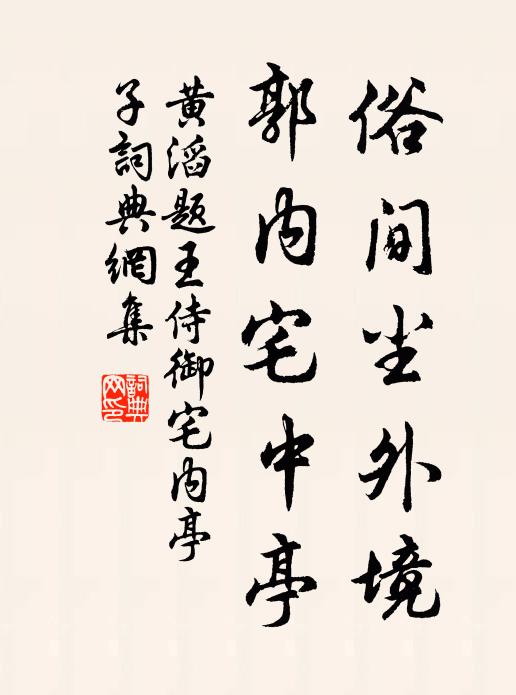 俗间尘外境
郭内宅中亭
黄滔题王侍御宅内亭
子詞典網集
詞典网印